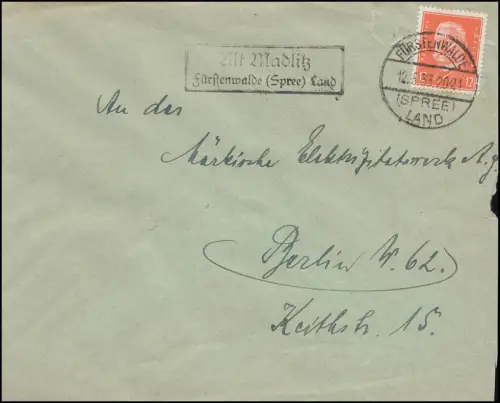 Alt Madlitz
Fürstenwalde (Spree) Land
FÜRSTENWALDE
(SPREE)
LAND
12
An das
Märkische Elektrizitätswerk A.g.
Berlin W. 62.
Keithstr. 15.